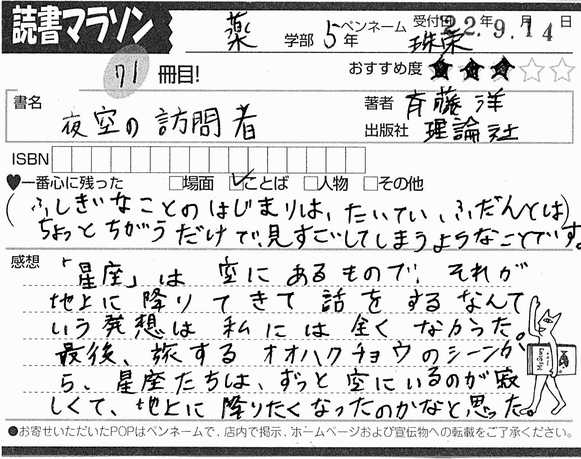 読書マラソン 薬 学部 5年 ペンネーム 珠泉 受付日 22年 9月 14日
71 冊目! おすすめ度 ★★★☆☆
書名 夜空の訪問者 著者 斉藤洋
出版社 理論社
ISBN
♥一番心に残った □場面 ☑ことば □人物 □その他
(ふしぎなことのはじまりは、たいてい、ふだんとは)
ちょっとちがうだけで、見すごしてしまうようなことです。
感想 「星座」は空にあるもので、それが
地上に降りてきて話をするなんて
いう発想は私には全くなかった。
最後、旅するオオハクチョウのシーンか
ら、星座たちは、ずっと空にいるのが寂
しくて、地上に降りたくなったのかなと思った。
●お寄せいただいたPOPはペンネームで、店内で掲示、ホームページおよび宣伝物への転載をご了承ください。